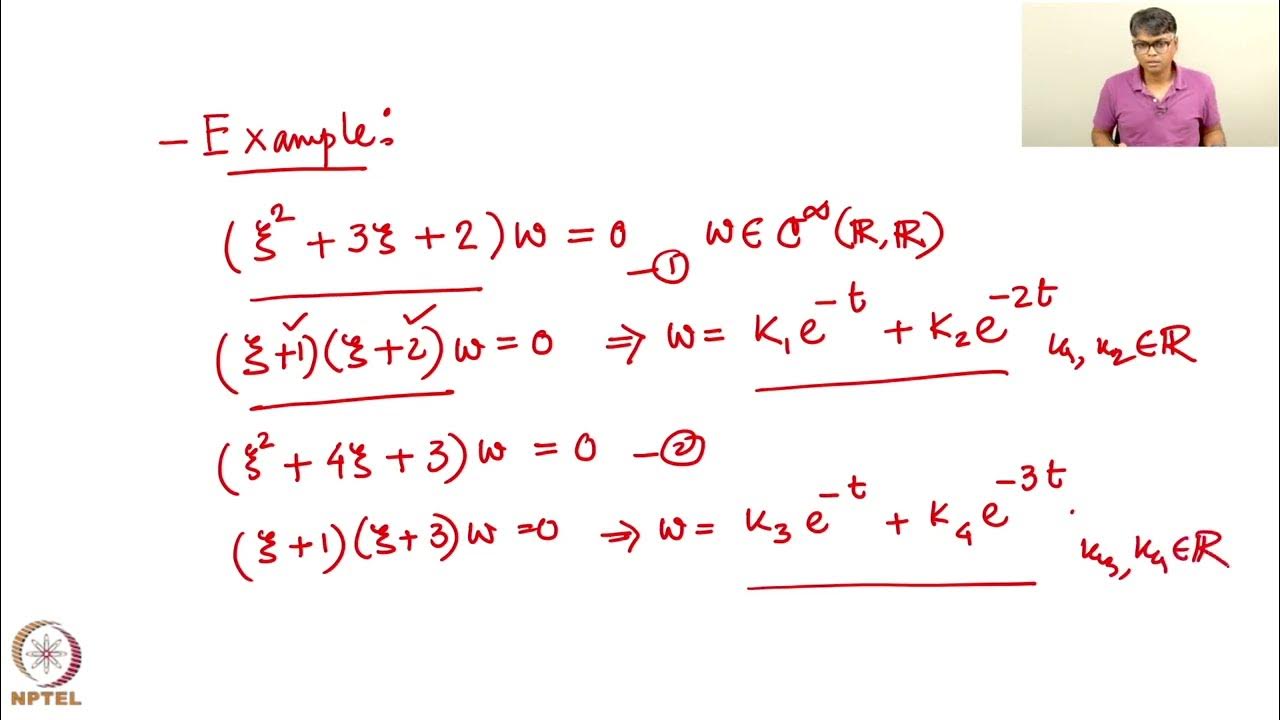 – Example:
(ξ² + 3ξ + 2)w = 0 –① w ∈ C^∞(ℝ, ℝ)
(ξ+1)(ξ+2)w = 0 ⇒ w = K₁e^{-t} + K₂e^{-2t} K₁, K₂ ∈ ℝ
(ξ² + 4ξ + 3)w = 0 –②
(ξ+1)(ξ+3)w = 0 ⇒ w = K₃e^{-t} + K₄e^{-3t}. K₃, K₄ ∈ ℝ
NPTEL